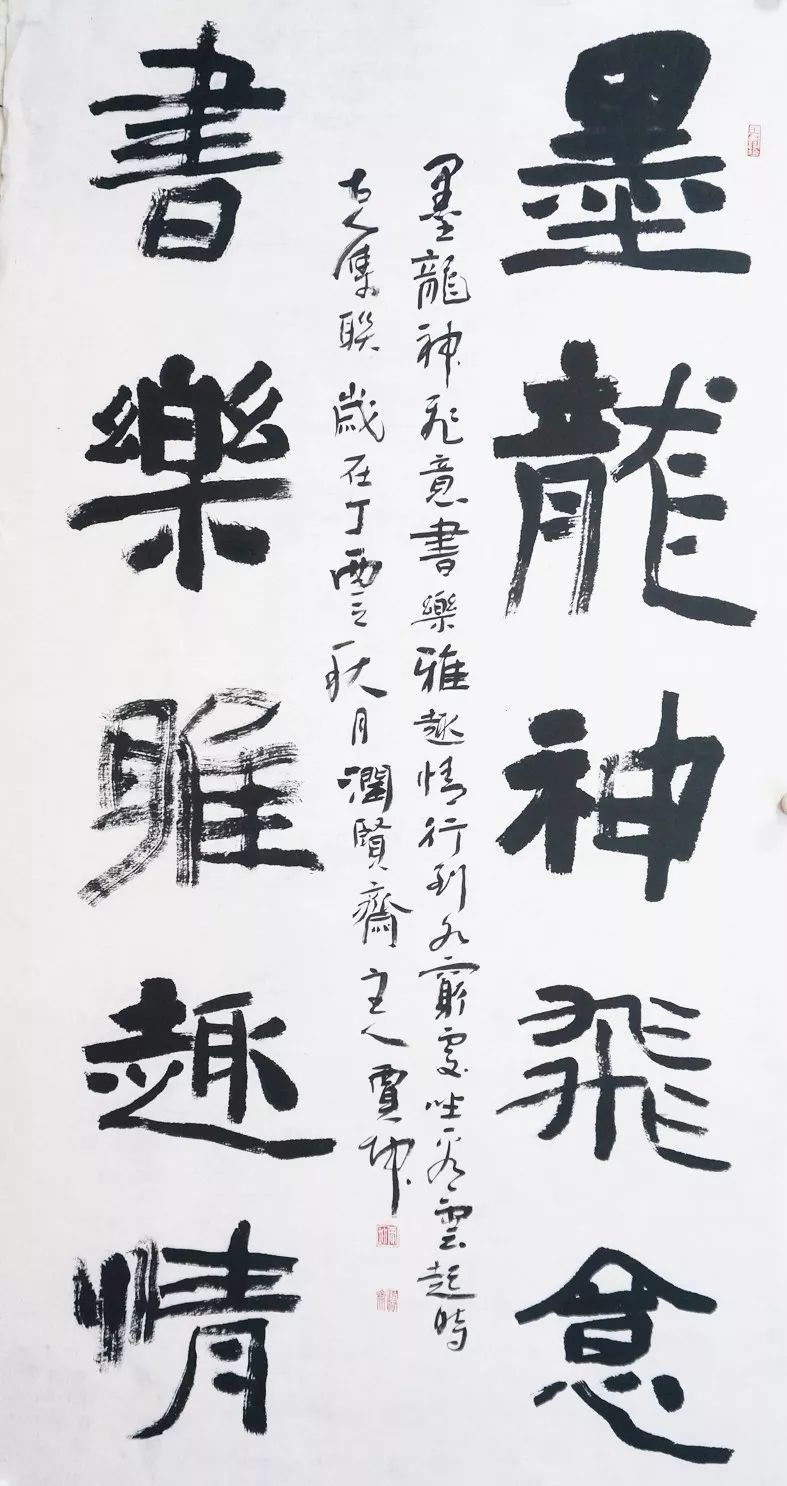 墨龍神飛意
墨龍神飛意書樂雅趣情行到水窮處坐看雲起時
古人集聯歲在丁酉之秋月潤賢齋主人賈坤
書樂雅趣情